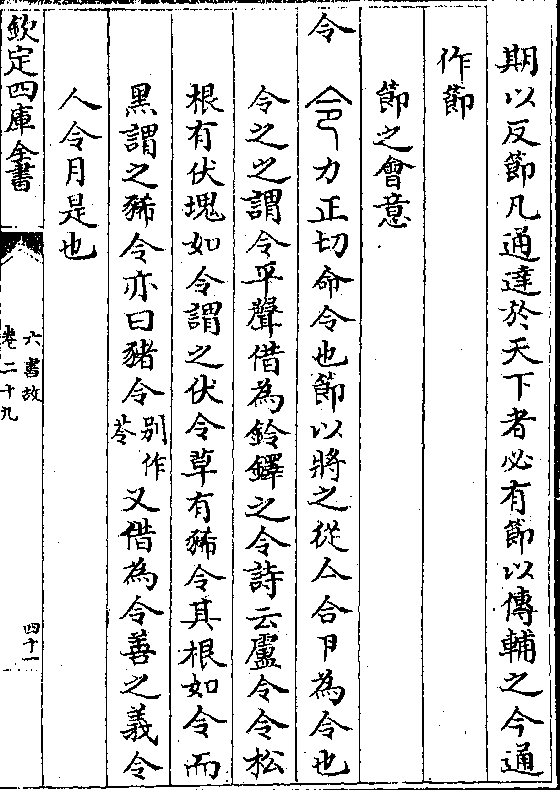 期以反節凡通達於天下者必有節以傳輔之今通
作節
節之會意
令 力正切命令也節以將之從亼合卪為令也
令之之謂令平聲借為鈴鐸之令詩云盧令令松
根有伏塊如令謂之伏令草有豨令其根如令而
黑謂之豨令亦曰豬令别作苓又借為令善之義令
人令月是也
欽定四庫全書
六書故
卷二十九
四十一